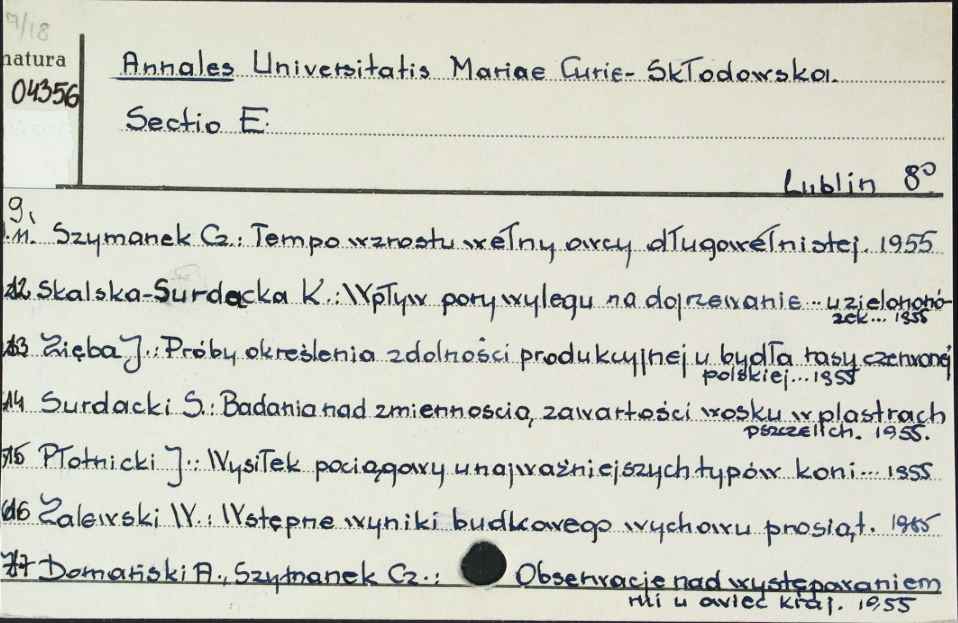 7/18
natura
04356
Annales Universitatis Mariae Curie-Skłodowska.
Sectio E.
Lublin 8°
9,
11. Szymanek Cz.: Tempo wzrostu wełny owcy długowełnistej. 1955
12 Skalska-Surdacka K.: Wpływ pory wylegu na dojrzewanie... u zielononó-
żek... 1955
13 Zięba J.: Próby określenia zdolności produkcyjnej u bydła rasy czerwonej
polskiej... 1955
14 Surdacki S.: Badania nad zmiennoscią zawartości wosku w plastrach
pszczelich. 1955.
15 Płotnicki J.: Wysiłek pociągowy u najważniejszych typów koni... 1955
16 Zalewski W.: Wstępne wyniki budkowego wychowu prosiąt. 1955
17 Domański A., Szymanek Cz.: Obserwacje nad występowaniem
rui u owiec kraj. 1955